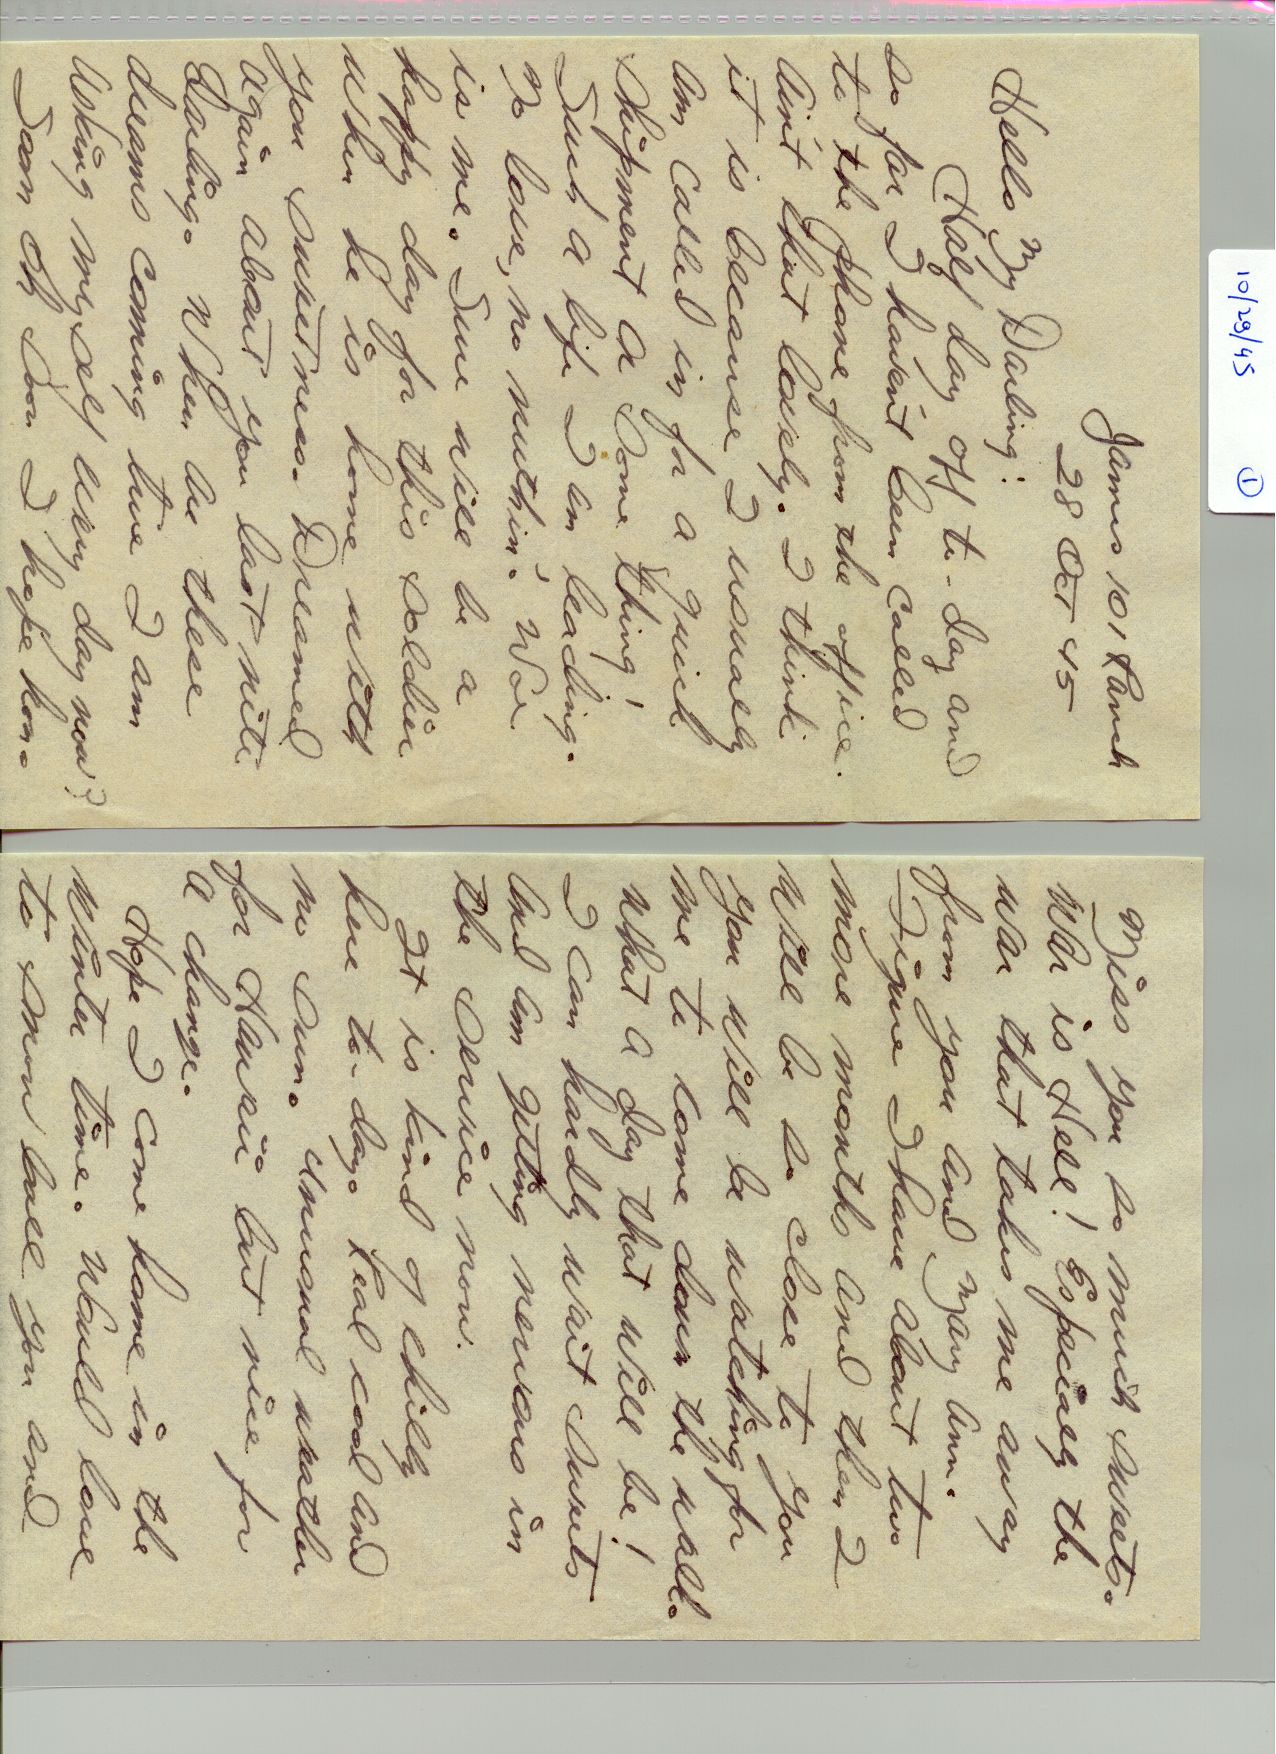 10/29/45 ①
James 101 Ranch
28 Oct 45
Hello My Darling:
Half day off to-day and
so far I haven't been called
to the phone from the office.
Ain't that lovely. I think
it is because I usually
am called in for a quick
shipment a some thing!
Such a life I am leading.
No love, no nuthin'. Woe
is me. Sure will be a
happy day for this soldier
when he is home with
you sweetness. Dreamed
again about you last nite
Darling. When are these
dreams coming true I am
asking myself every day now?
Soon oh soon I hope hon.
Miss you so much sweets.
War is Hell! Especialy the
war that takes me away
from you and Mary Ann.
Figure I have about two
more months and then I
will be so close to you
you will be watching for
me to come down the walk.
What a day that will be!
I can hardly wait sweets
and am getting nervous in
the service now.
It is kind of chilly
here to-day. Real cool and
no sun. Unusual weather
for Hawaii but nice for
a change.
Hope I come home in the
winter time. Would love
to snow ball you and